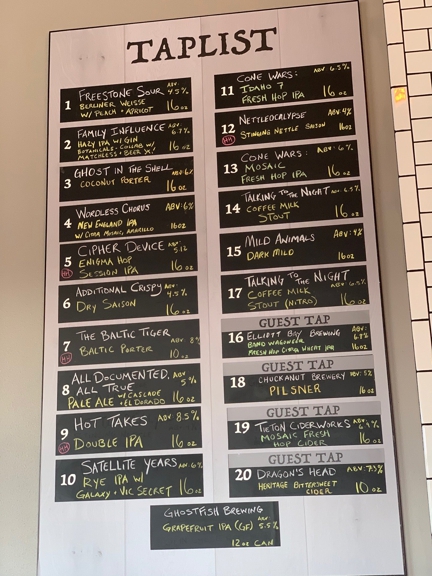 TAPLIST
1 FREESTONE SOUR ABV 4.5%
BERLINER WEISSE
W/ PEACH + APRICOT 16oz
2 FAMILY INFLUENCE ABV 6.7%
HAZY IPA W/ GIN
BOTANICALS - COLLAB W/
MATCHLESS + BEER X! 16oz
3 GHOST IN THE SHELL ABV 6%
COCONUT PORTER
16oz
4 WORDLESS CHORUS ABV: 6%
NEW ENGLAND IPA
W/ CITRA MOSAIC, AMARILLO 16oz
5 CIPHER DEVICE ABV
ENIGMA HOP
SESSION IPA 16oz
6 ADDITIONAL CRISPY ABV 4.5%
DRY SAISON
16oz
7 THE BALTIC TIGER ABV 8%
BALTIC PORTER
10oz
8 ALL DOCUMENTED, ABV
ALL TRUE 5%
PALE ALE W/ CASCADE
+ EL DORADO 16oz
9 HOT TAKES ABV 8.5%
DOUBLE IPA
16oz
10 SATELLITE YEARS ABV 6%
RYE IPA W/
GALAXY + VIC SECRET 16oz
11 CONE WARS: ABV 6.5%
IDAHO 7
FRESH HOP IPA 16oz
12 NETTLEOCALYPSE ABV 4%
STINGING NETTLE SAISON 16oz
13 CONE WARS: ABV: 6%
MOSAIC
FRESH HOP IPA 16oz
14 TALKING TO THE NIGHT ABV 6.5%
COFFEE MILK
STOUT 16oz
15 MILD ANIMALS ABV: 4%
DARK MILD 16oz
17 TALKING TO THE NIGHT ABV 6.5%
COFFEE MILK
STOUT (NITRO) 16oz
GUEST TAP
16 ELLIOTT BAY BREWING ABV:
BAND WAGONEER
FRESH HOP CITRA WHEAT IPA 16oz
GUEST TAP
18 CHUCKANUT BREWERY ABV: 5%
PILSNER 16oz
GUEST TAP
19 TIETON CIDERWORKS ABV 6.9%
MOSAIC FRESH
HOP CIDER 16oz
GUEST TAP
20 DRAGON'S HEAD ABV: 7.5%
HERITAGE BITTERSWEET
CIDER 10oz
GHOSTFISH BREWING
GRAPEFRUIT IPA (GF) ABV 5.5%
12oz CAN